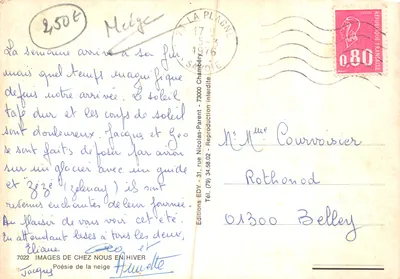 2,50€
Neige
LA PLAGNE
17
1976
SAVOIE
0,80
La semaine arrive à sa fin
mais quel temps magnifique
depuis notre arrivée. Le soleil
tape dur et les coups de soleil
sont douloureux. Jacques et Geo
se sont faits déposer par avion
sur un glacier avec un guide
et Zézé (Zelway) ils sont
revenus enchantés de leur journée.
Au plaisir de vous voir cet été.
En attendant bises à tous les deux.
Eliane Geo et
Jacques Annette
Mr Mme Courvoisier
Rothonod
01300 Belley
Editions EDY - 31, rue Nicolas-Parent - 73000 Chambéry
Tél. (79) 34.58.02 - Reproduction interdite
7022 IMAGES DE CHEZ NOUS EN HIVER
Poésie de la neige